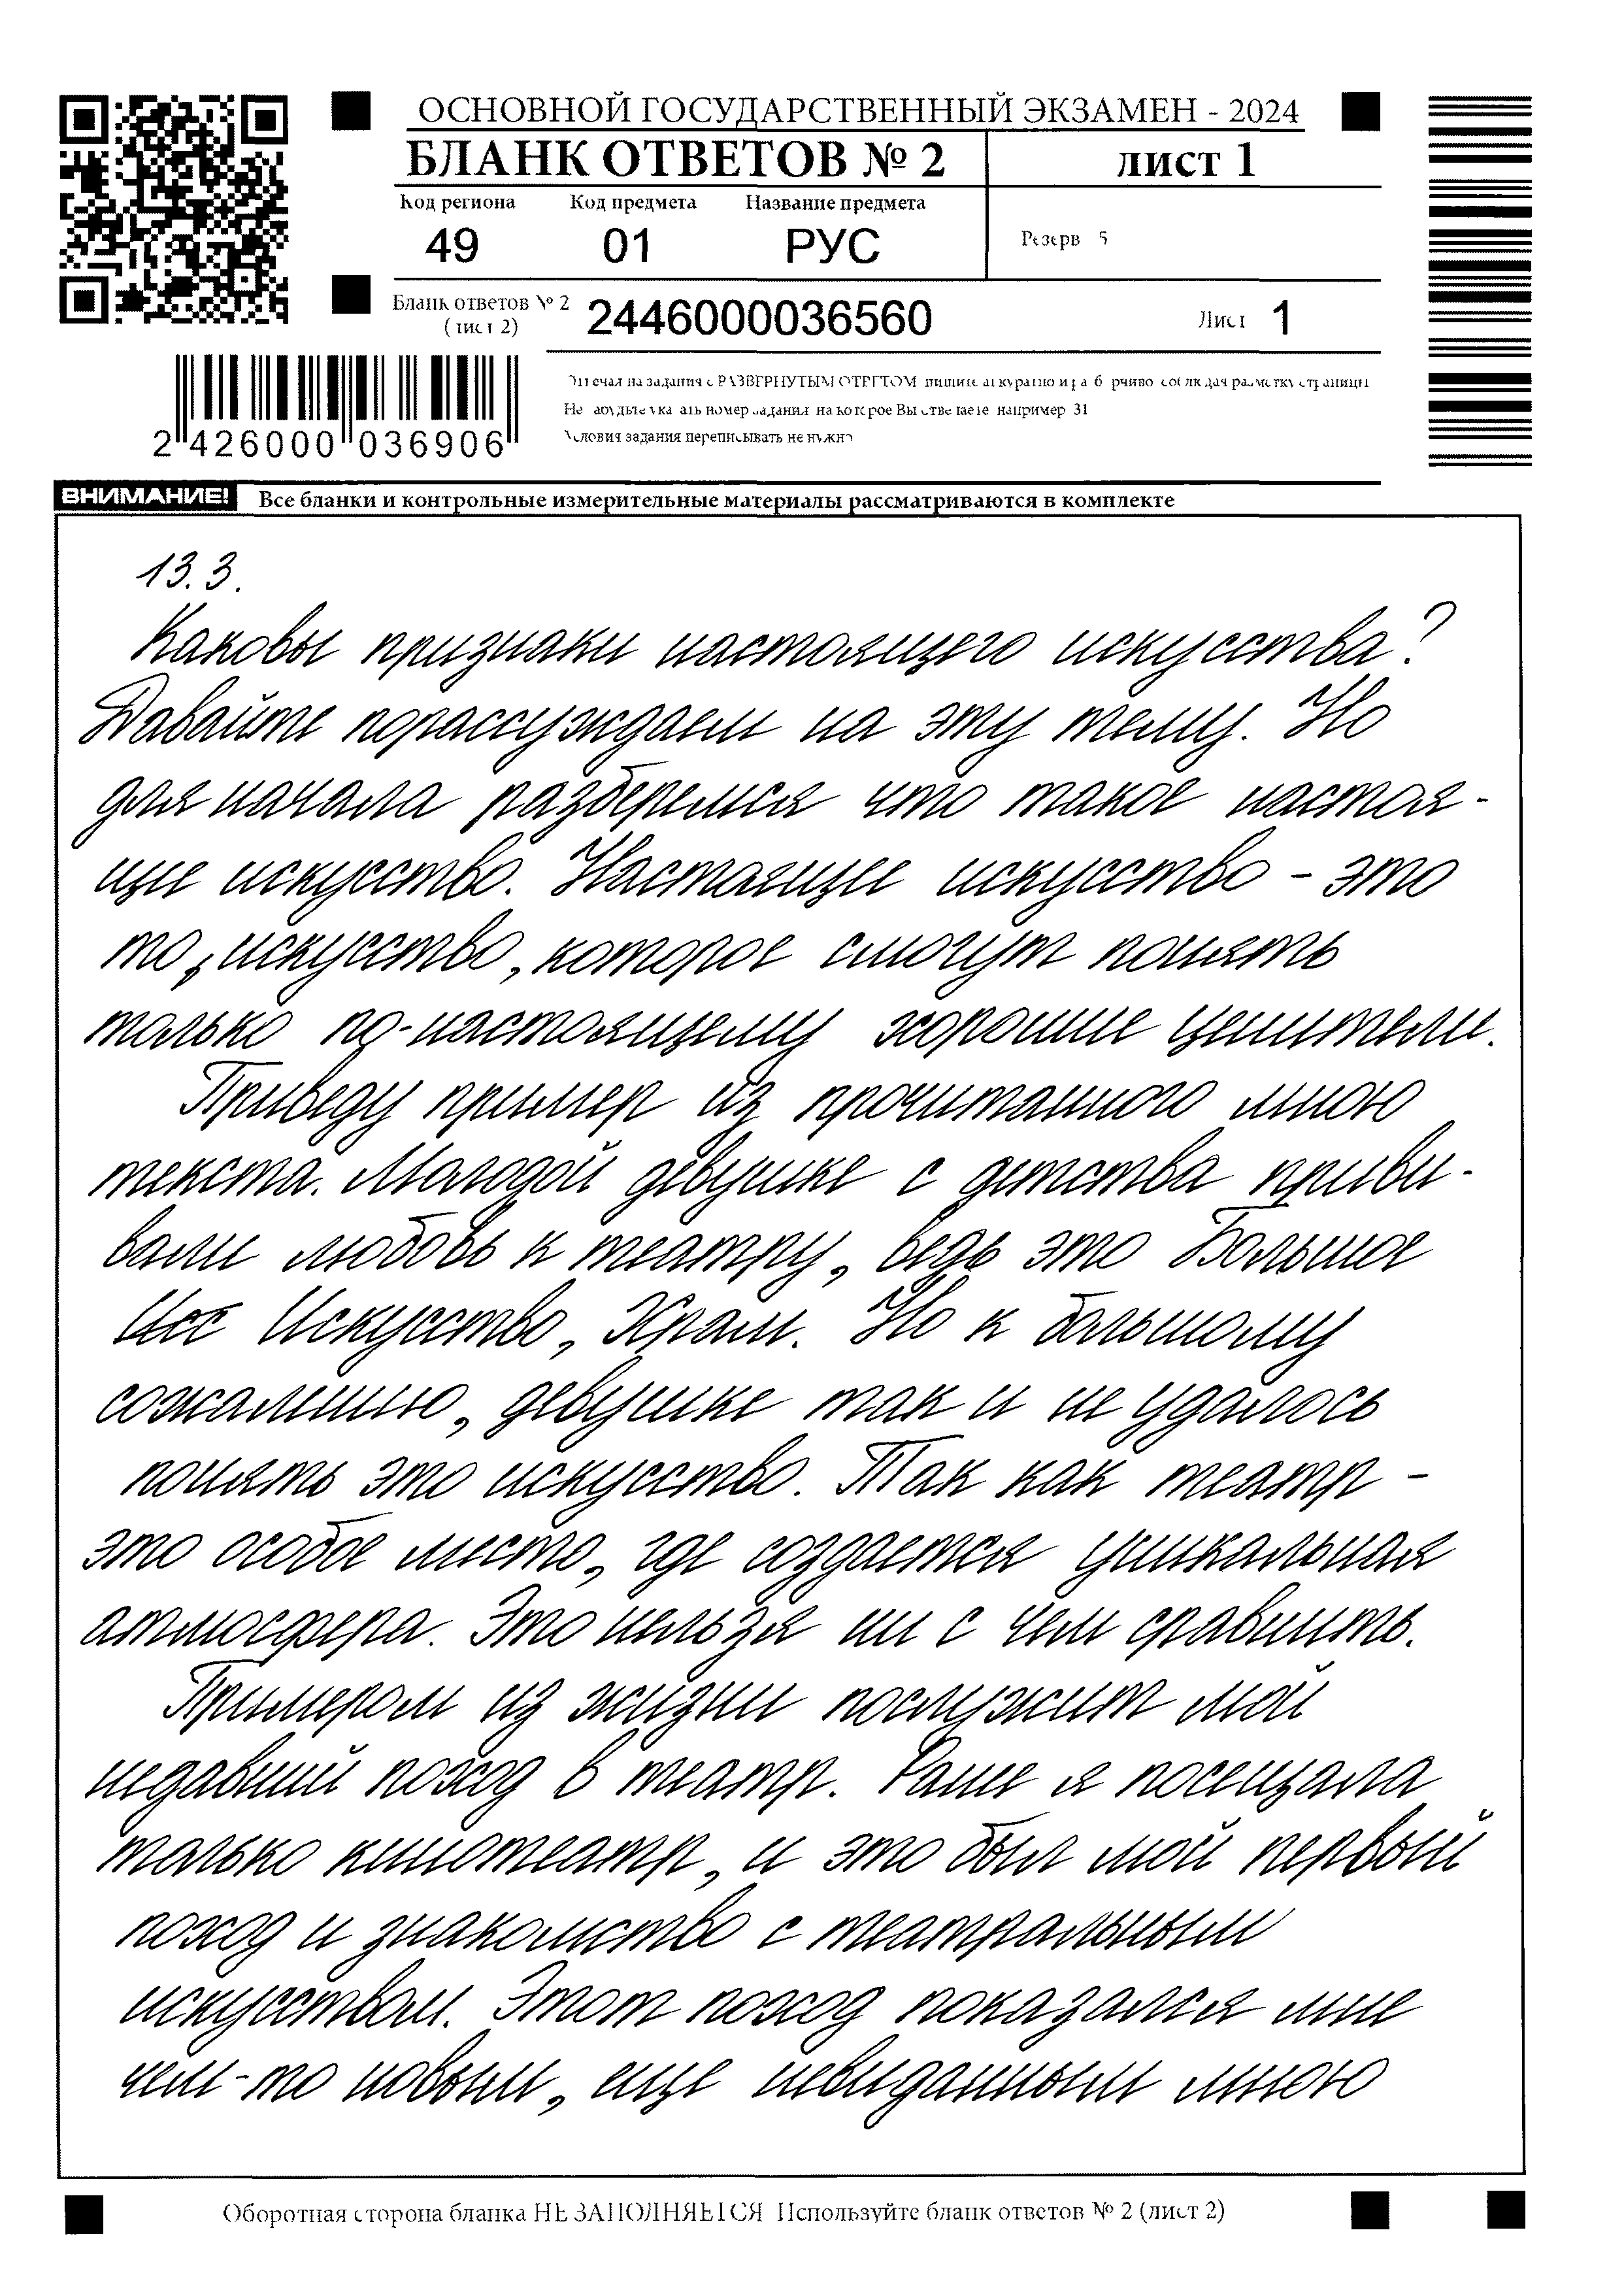 ОСНОВНОЙ ГОСУДАРСТВЕННЫЙ ЭКЗАМЕН - 2024
БЛАНК ОТВЕТОВ № 2 лист 1
Код региона Код предмета Название предмета
49 01 РУС
Резерв 5
Бланк ответов № 2
(лист 2)
2446000036560
Лист 1
2 426000 036906
Отвечая на задания с РАЗВЕРНУТЫМ ОТВЕТОМ пишите аккуратно и разборчиво соблюдая разметку страницы
Не забудьте указать номер задания на которое Вы отвечаете например 31
Условия задания переписывать не нужно
ВНИМАНИЕ! Все бланки и контрольные измерительные материалы рассматриваются в комплекте
13.3.
Каковы признаки настоящего искусства?
Давайте порассуждаем на эту тему. Но
для начала разберемся что такое настоя-
щее искусство. Настоящее искусство - это
то, искусство, которое смогут понять
только по-настоящему хорошие ценители.
Приведу пример из прочитанного мною
текста. Молодой девушке с детства приви-
вали любовь к театру, ведь это Большое
Исс Искусство, Храм. Но к большому
сожалению, девушке так и не удалось
понять это искусство. Так как театр -
это особое место, где создается уникальная
атмосфера. Это нельзя ни с чем сравнить.
Примером из жизни послужит мой
недавний поход в театр. Ранее я посещала
только кинотеатр, и это был мой первый
поход и знакомство с театральным
искусством. Этот поход показался мне
чем-то новым, еще невиданным мною
Оборотная сторона бланка НЕ ЗАПОЛНЯЕТСЯ Используйте бланк ответов № 2 (лист 2)